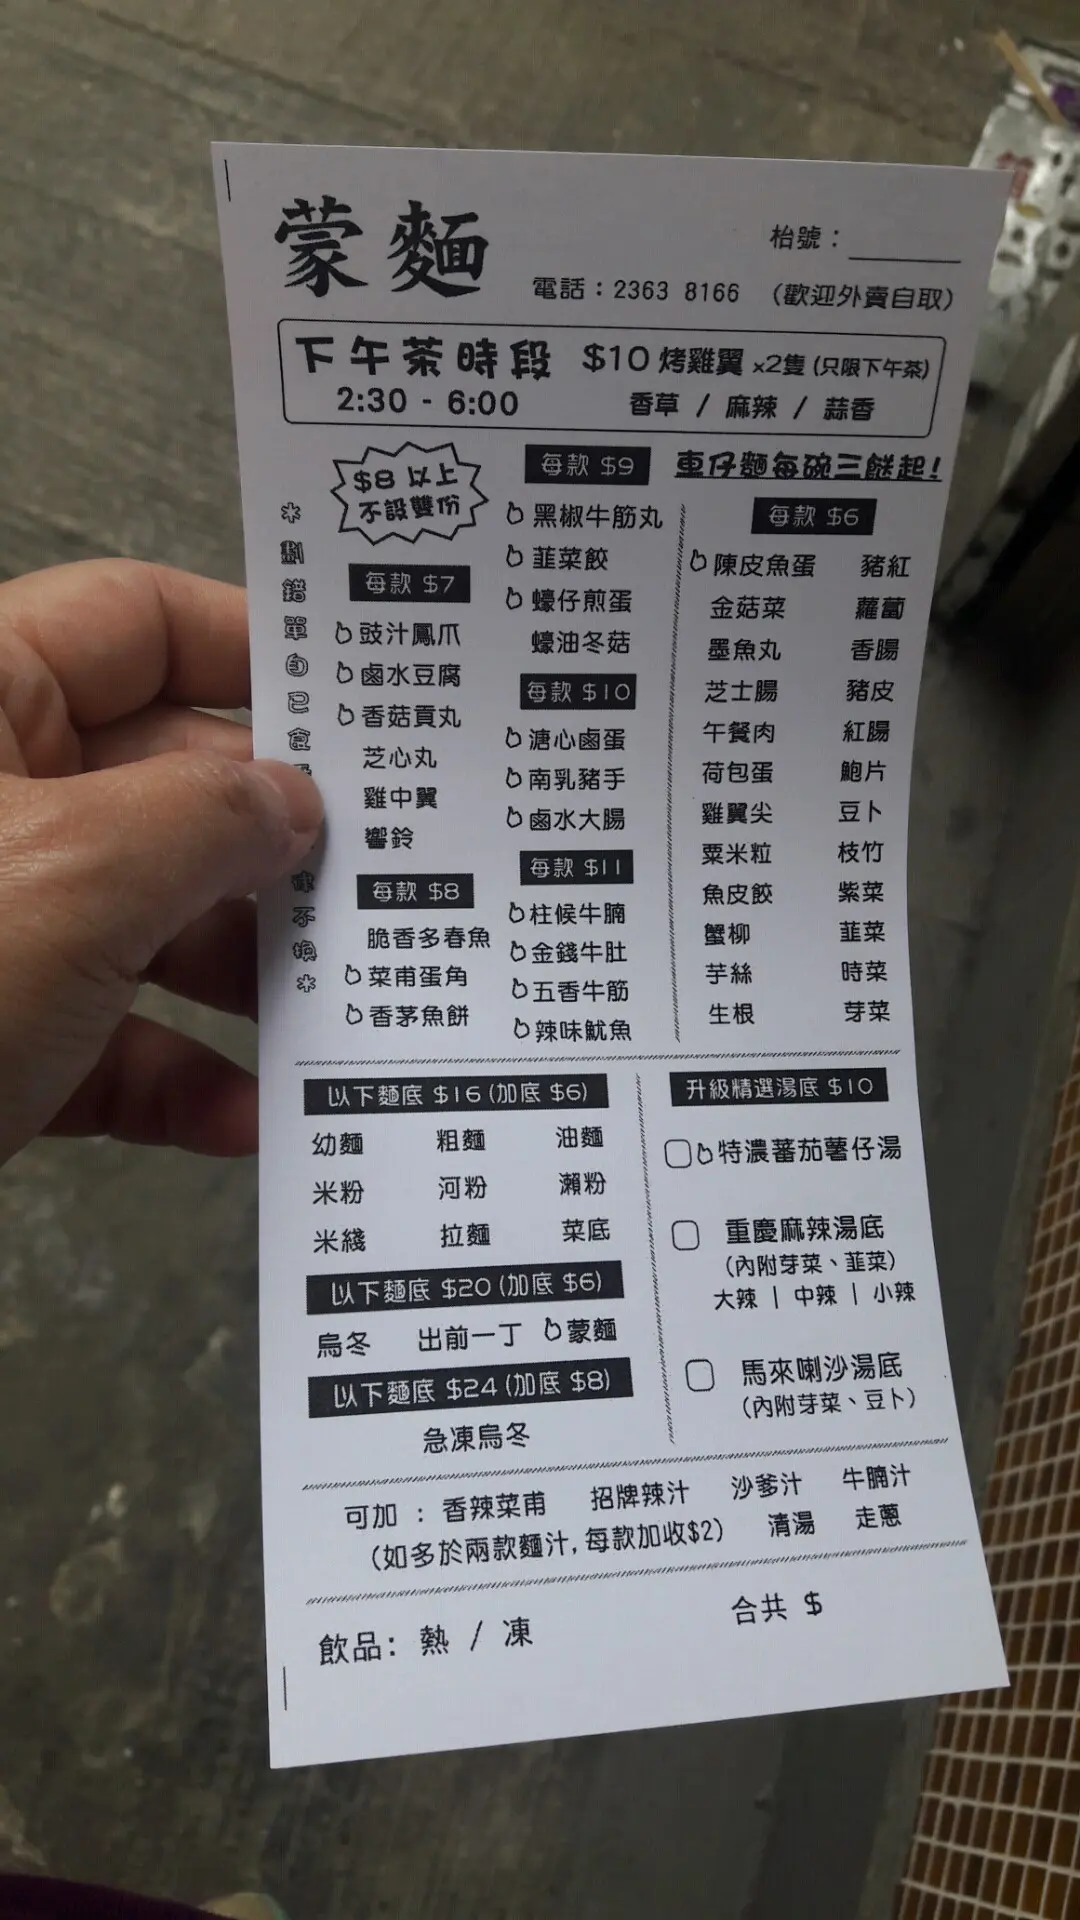 蒙麵
枱號：
電話：2363 8166 (歡迎外賣自取)
下午茶時段 $10 烤雞翼 x2隻 (只限下午茶)
2:30 - 6:00 香草 / 麻辣 / 蒜香
$8 以上
不設雙份
*劃錯單自己食
不換*
每款 $7
豉汁鳳爪
鹵水豆腐
香菇貢丸
芝心丸
雞中翼
響鈴
每款 $8
脆香多春魚
菜甫蛋角
香茅魚餅
每款 $9
黑椒牛筋丸
韮菜餃
蠔仔煎蛋
蠔油冬菇
每款 $10
溏心鹵蛋
南乳豬手
鹵水大腸
每款 $11
柱候牛腩
金錢牛肚
五香牛筋
辣味魷魚
車仔麵每碗三餸起!
每款 $6
陳皮魚蛋 豬紅
金菇菜 蘿蔔
墨魚丸 香腸
芝士腸 豬皮
午餐肉 紅腸
荷包蛋 鮑片
雞翼尖 豆卜
粟米粒 枝竹
魚皮餃 紫菜
蟹柳 韮菜
芋絲 時菜
生根 芽菜
以下麵底 $16 (加底 $6)
幼麵 粗麵 油麵
米粉 河粉 瀨粉
米綫 拉麵 菜底
以下麵底 $20 (加底 $6)
烏冬 出前一丁 蒙麵
以下麵底 $24 (加底 $8)
急凍烏冬
升級精選湯底 $10
特濃蕃茄薯仔湯
重慶麻辣湯底
(內附芽菜、韮菜)
大辣 | 中辣 | 小辣
馬來喇沙湯底
(內附芽菜、豆卜)
可加 : 香辣菜甫 招牌辣汁 沙爹汁 牛腩汁
(如多於兩款麵汁, 每款加收$2) 清湯 走蔥
飲品: 熱 / 凍
合共 $